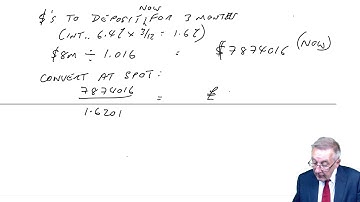 NOW
$'s TO DEPOSIT, FOR 3 MONTHS
(INT.. 6.4% × 3/12 = 1.6%)
$8m ÷ 1.016 = $7874016 (NOW)
CONVERT AT SPOT:
7874016
1.6201
= £